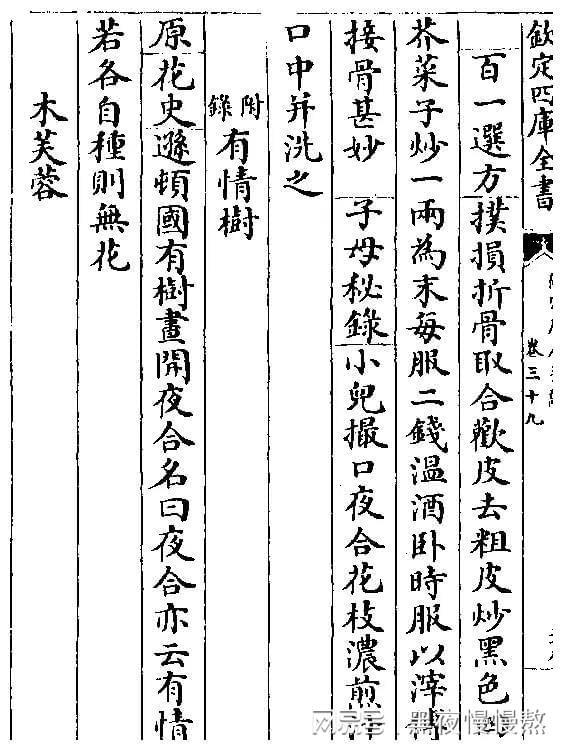 欽定四庫全書
卷三十九
百一選方撲損折骨取合歡皮去粗皮炒黑色
芥菜子炒一兩為末每服二錢溫酒卧時服以滓
接骨甚妙 子母秘錄小兒撮口夜合花枝濃煎
口中并洗之
附錄有情樹
原花史遜頓國有樹晝開夜合名曰夜合亦云有情
若各自種則無花
木芙蓉
搜狐号@黑夜慢慢熬